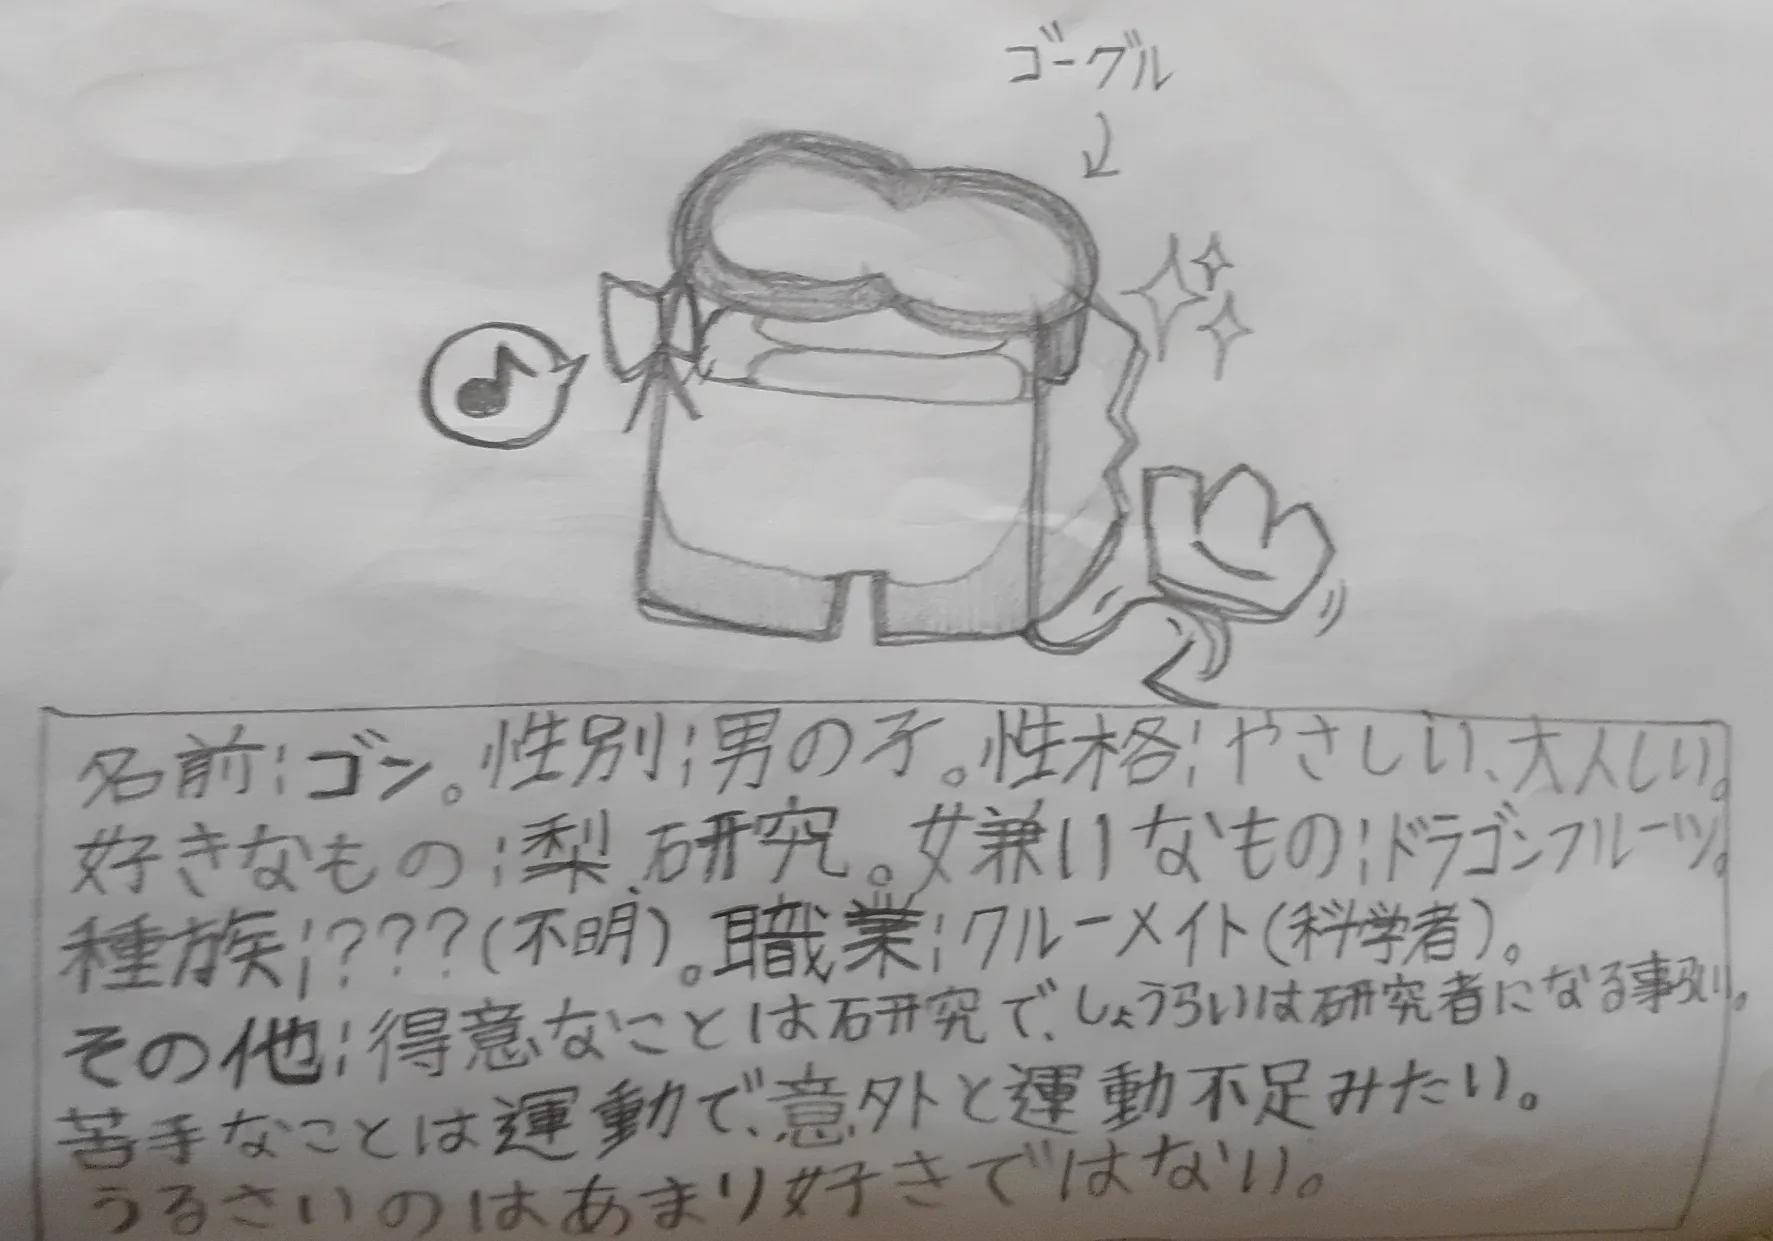 ゴーグル
名前:ゴン。性別:男の子。性格:やさしい、大人しい。
好きなもの:梨、研究。嫌いなもの:ドラゴンフルーツ。
種族:???(不明)。職業:クルーメイト(科学者)。
その他:得意なことは研究で、しょうらいは研究者になる事らしい。
苦手なことは運動で、意外と運動不足みたい。
うるさいのはあまり好きではない。